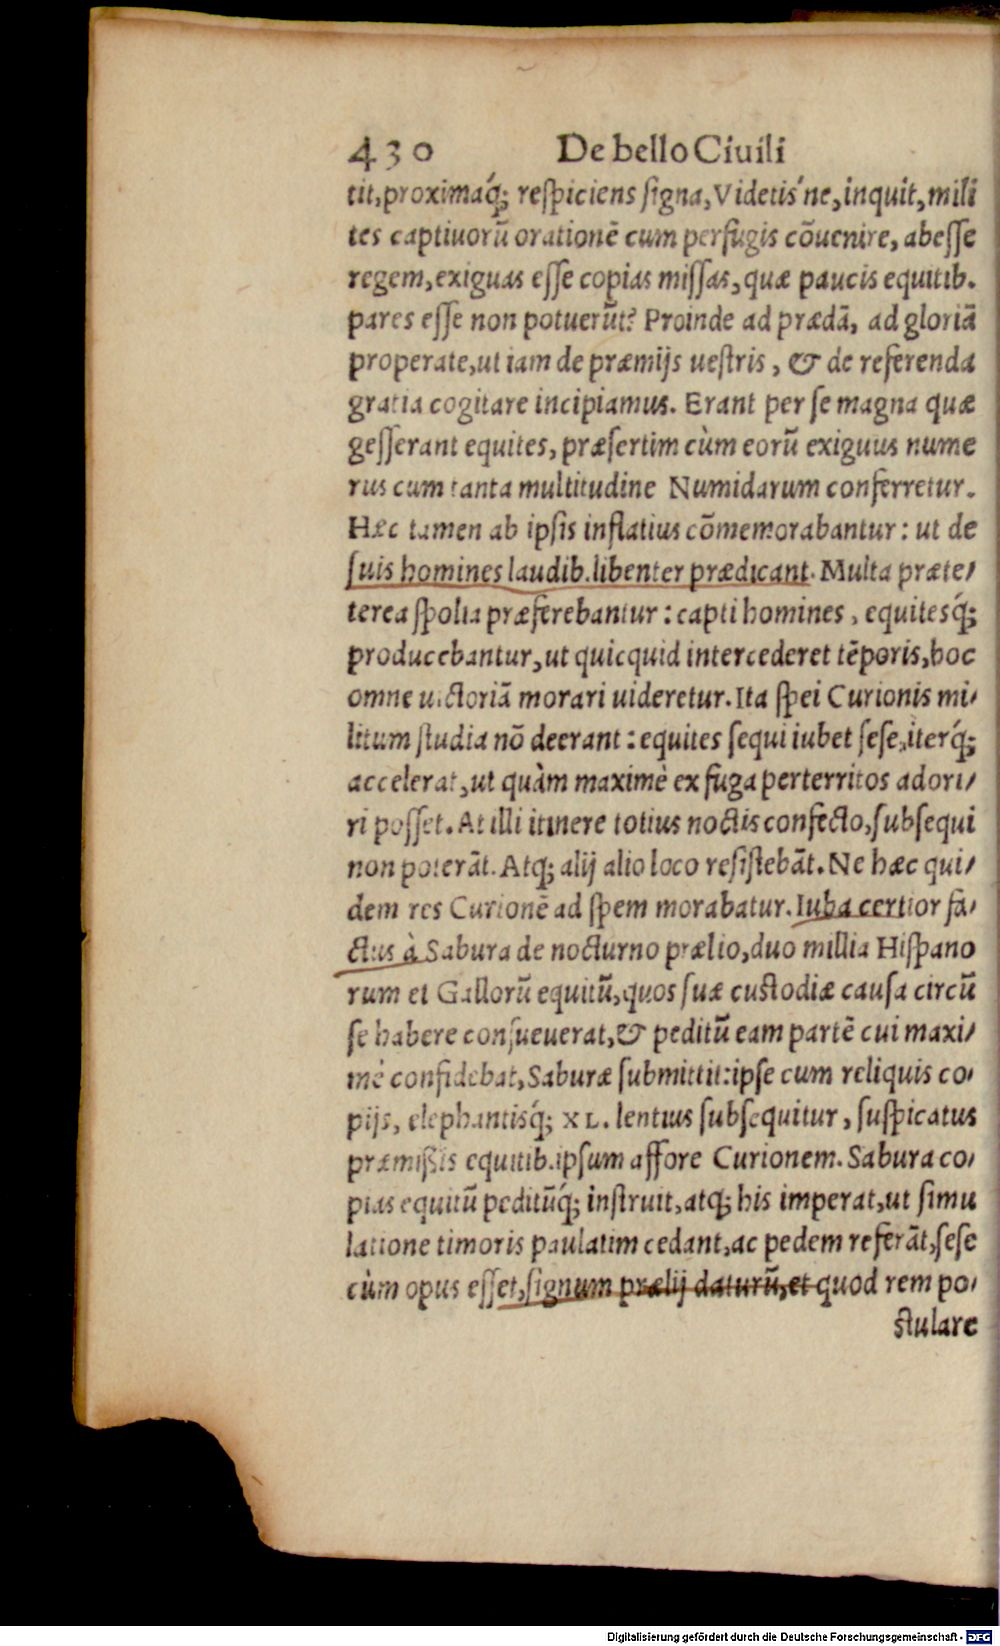 430 De bello Ciuili
tit, proximaq́; reſpiciens ſigna, Videtis'ne, inquit, mili
tes captiuorū orationē cum perfugis cōuenire, abeſſe
regem, exiguas eſſe copias miſſas, quæ paucis equitib.
pares eſſe non potuerūt? Proinde ad prædā, ad gloriā
properate, ut iam de præmijs ueſtris, & de referenda
gratia cogitare incipiamus. Erant per ſe magna quæ
geſſerant equites, præſertim cùm eorū exiguus nume
rus cum tanta multitudine Numidarum conferretur.
Hæc tamen ab ipſis inflatius cōmemorabantur: ut de
ſuis homines laudib. libenter prædicant. Multa præte/
terea ſpolia præferebantur: capti homines, equitesq́;
producebantur, ut quicquid intercederet tēporis, hoc
omne uictoriā morari uideretur. Ita ſpei Curionis mi/
litum ſtudia nō deerant: equites ſequi iubet ſeſe, iterq́;
accelerat, ut quàm maximè ex fuga perterritos adori/
ri poſſet. At illi itinere totius noctis confecto, ſubſequi
non poterāt. Atq; alij alio loco reſiſtebāt. Ne hæc qui/
dem res Curionē ad ſpem morabatur. Iuba certior fa/
ctus à Sabura de nocturno prælio, duo millia Hiſpano
rum et Gallorū equitū, quos ſuæ cuſtodiæ cauſa circū
ſe habere conſueuerat, & peditū eam partē cui maxi/
mè confidebat, Saburæ ſubmittit: ipſe cum reliquis co/
pijs, elephantisq́; XL. lentius ſubſequitur, ſuſpicatus
præmißis equitib. ipſum affore Curionem. Sabura co/
pias equitū peditūq́; inſtruit, atq; his imperat, ut ſimu
latione timoris paulatim cedant, ac pedem referāt, ſeſe
cùm opus eſſet, ſignum prælij daturū, et quod rem po/
ſtulare
Digitalisierung gefördert durch die Deutsche Forschungsgemeinschaft - DFG